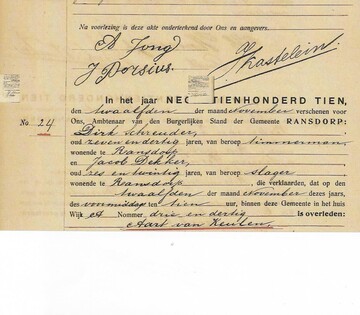 Na voorlezing is deze akte onderteekend door Ons en aangevers.
A Jong
J Dorsius.
Kastelein
In het jaar NEGENTIENHONDERD TIEN,
den twaalfden der maand November verschenen voor
No. 24
Ons, Ambtenaar van den Burgerlijken Stand der Gemeente RANSDORP:
Dirk Schreuder,
oud zeven en dertig jaren, van beroep timmerman,
wonende te Ransdorp en
Jacob Dekker,
oud zes en twintig jaren, van beroep slager
wonende te Ransdorp, die verklaarden, dat op den
twaalfden der maand November dezes jaars,
des voormiddags te tien uur, binnen deze Gemeente in het huis
Wijk A Nommer, drie en dertig is overleden:
Aart van Keulen